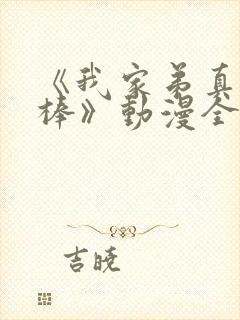 《我家弟真
棒》動漫全
吉曉